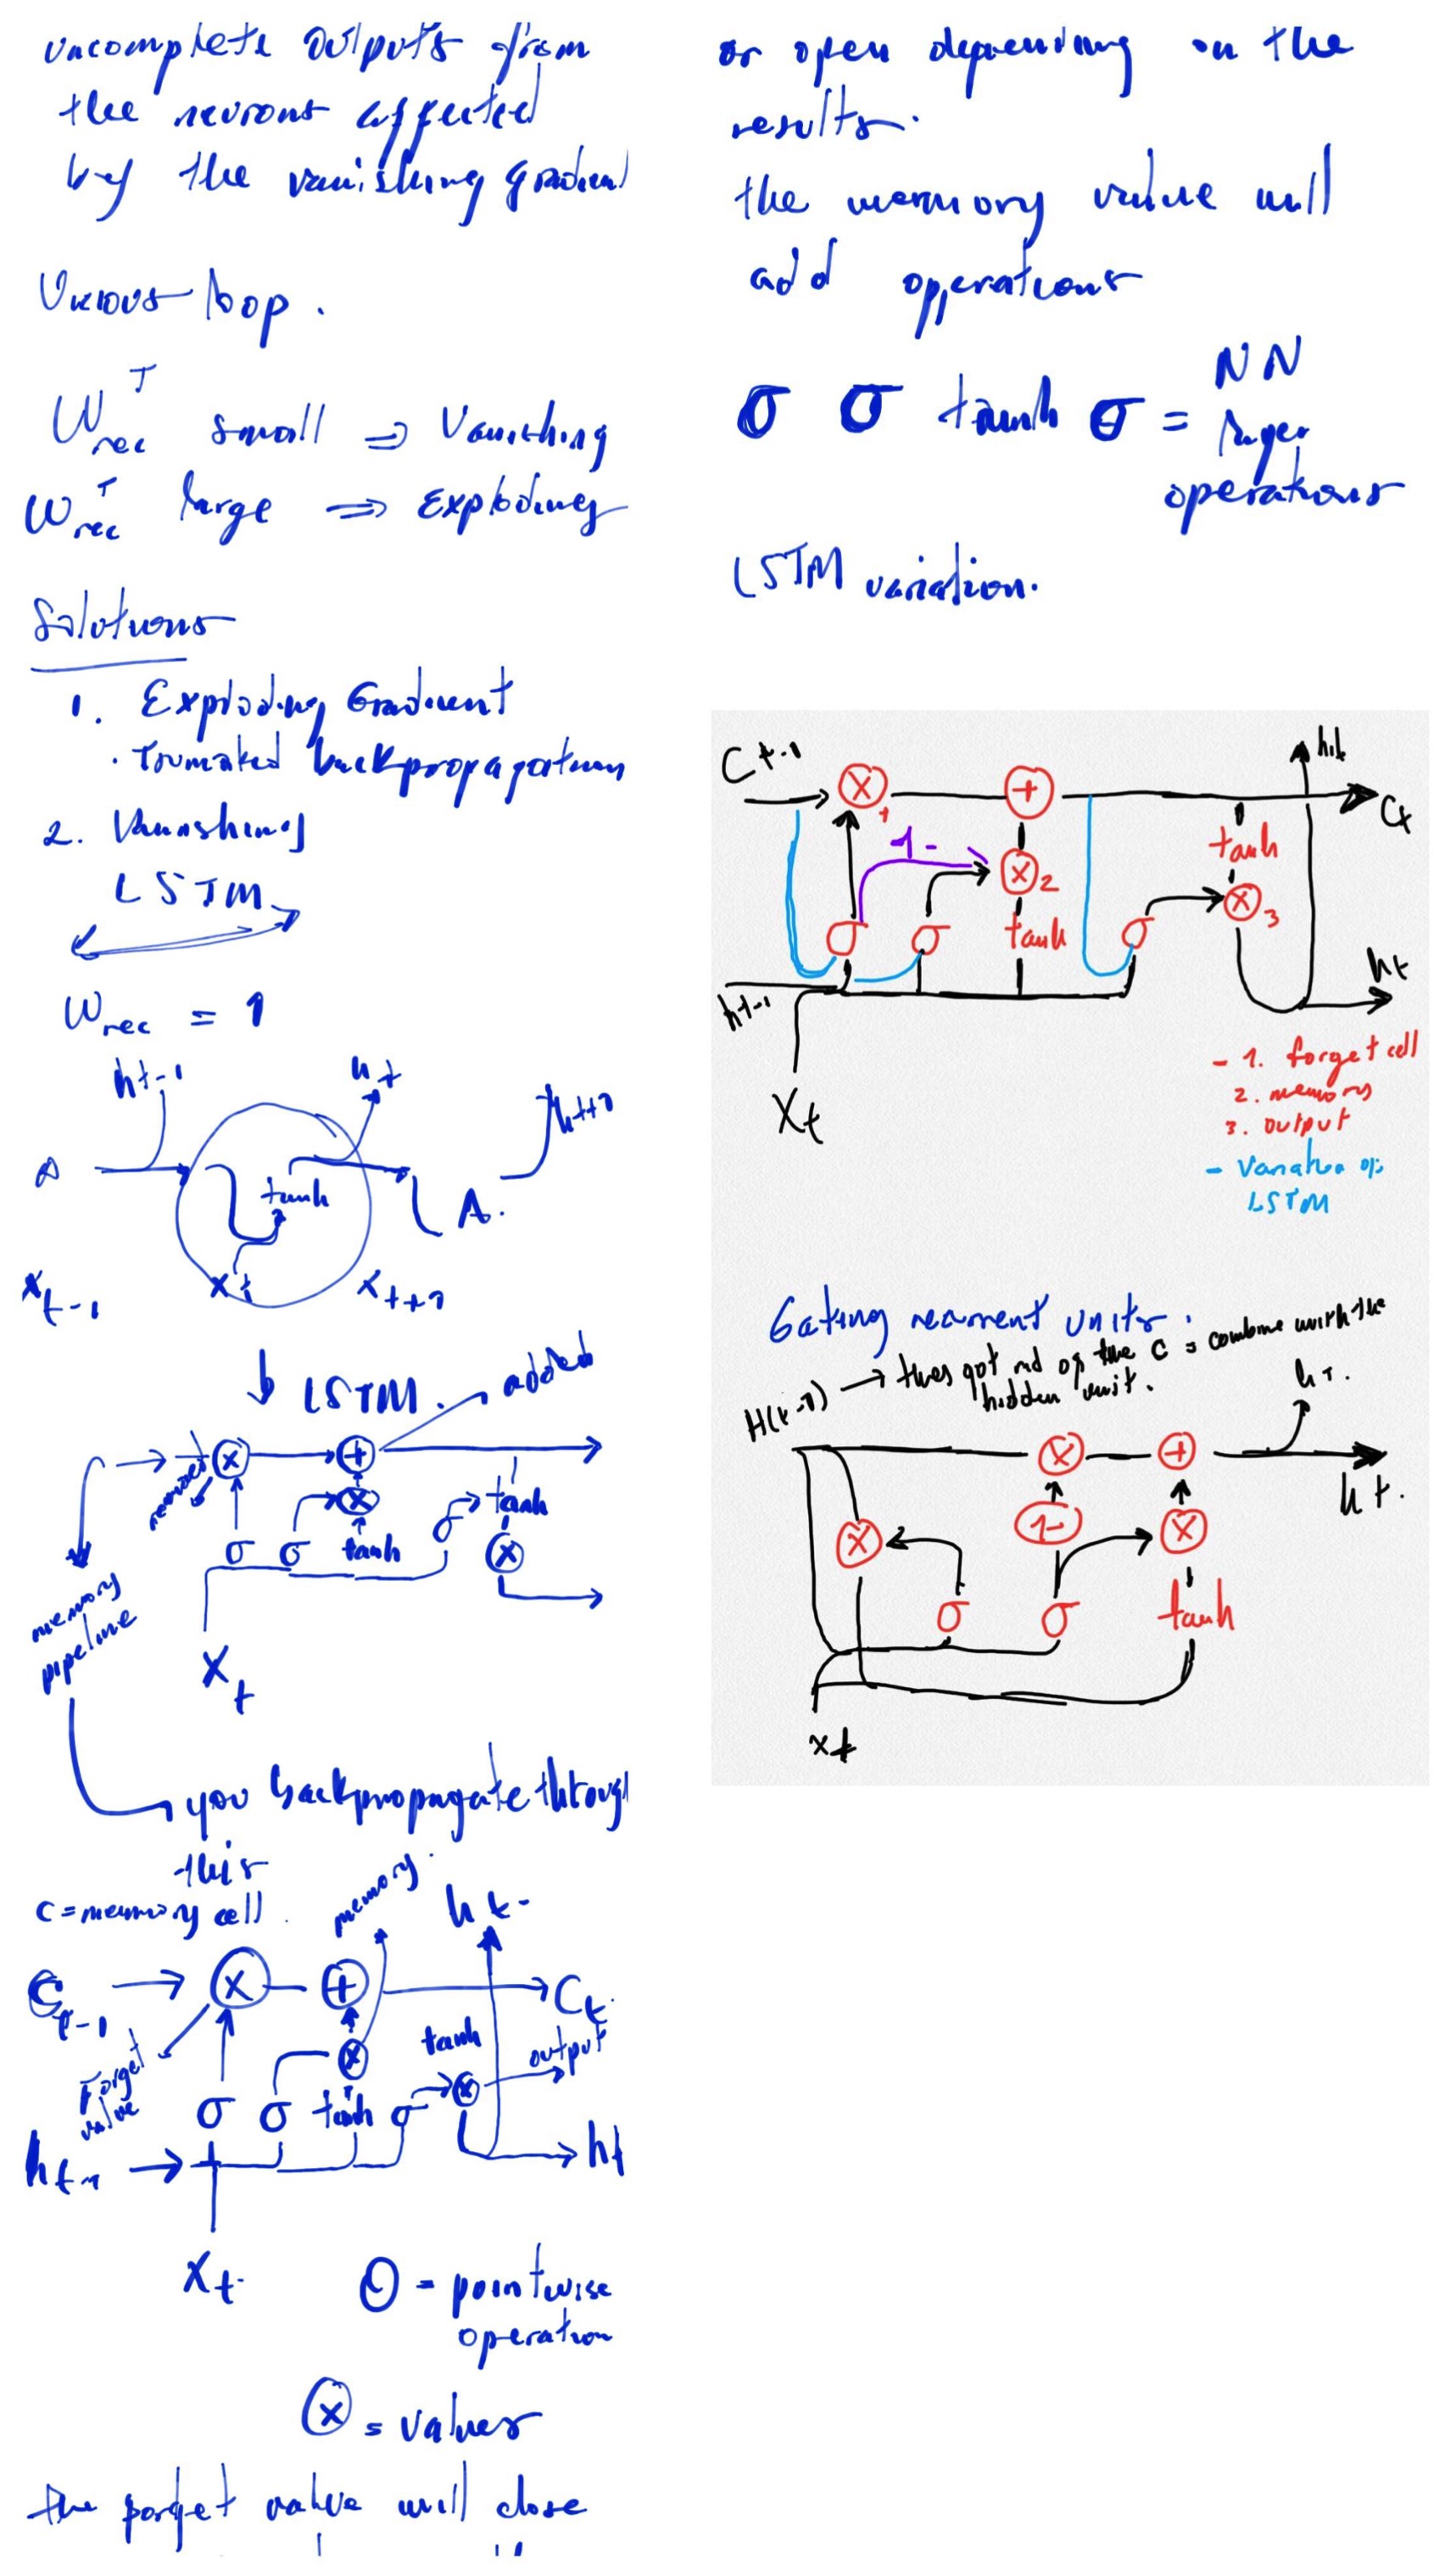 uncomplete outputs from
the neurons affected
by the vanishing gradient
Vicious loop.
W rec T small ⇒ Vanishing
W rec T large ⇒ Exploding
Solutions
1. Exploding Gradient
· Truncated backpropagation
2. Vanishing
LSTM
W rec = 1
ht-1 ht ht+1
tanh
A.
xt-1 xt xt+1
↓ LSTM. added
→ × → + →
×
σ → tanh
σ σ tanh ×
memory
pipeline
Xt
you backpropagate through
this
c = memory cell.
memory.
ht
Ct-1 → × + → Ct
Forget
valve
× tanh
output
σ σ tanh σ → ×
ht-1 → ht
Xt
O = pointwise
operation
⊗ = valves
the forget valve will close
or open depending on the
results.
the memory valve will
add operations
σ σ tanh σ = NN
layer
operations
LSTM variation.
Ct-1 × 1 + ht
Ct
1- tanh
× 2 × 3
σ σ tanh σ
ht-1 ht
Xt
- 1. forget cell
2. memory
3. output
- Variation of
LSTM
Gating recurrent units.
H(t-1) → thus got rid of the c = combine with the
hidden unit.
ht.
× +
ht.
× 1- ×
σ σ tanh
xt